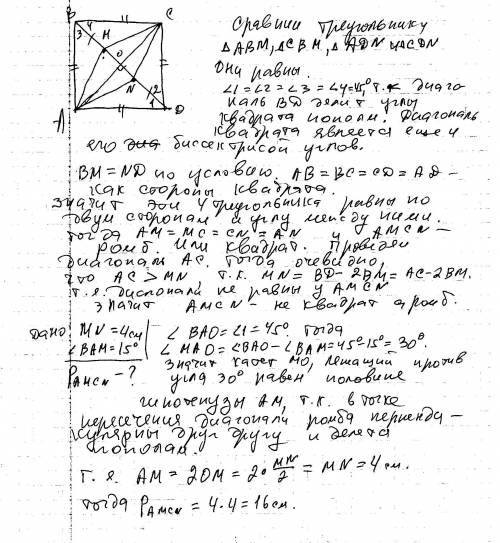 B
C
M
3 4
O
N
2
1
A
D
Сравним треугольнику
△ABM, △CBM, △ADN и △CDN
Они равны.
∠1=∠2=∠3=∠4=45°, т.к. диаго
наль BD делит углы
квадрата пополам. Диагональ
квадрата является еще и
его биссектрисой углов.
BM=ND по условию. AB=BC=CD=AD-
как стороны квадрата.
Значит эти 4 треугольника равны по
двум сторонам и углу между ними.
тогда AM=MC=CN=AN и AMCN-
ромб. Или квадрат. Проведем
диагональ AC. Тогда очевидно,
что AC>MN т.к. MN=BD-2BM=AC-2BM.
т.е. диагонали не равны у AMCN
значит AMCN- не квадрат а ромб.
дано: MN=4см
∠BAM=15°
P AMCN-?
∠BAO=∠1=45°. тогда
∠MAO=∠BAO-∠BAM=45°-15°=30°.
Значит катет MO, лежащий против
угла 30° равен половине
гипотенузы AM, т.к. в точке
пересечения диагонали ромба перпенди-
кулярны друг другу и делятся
пополам.
т.е. AM=2OM=2·MN/2=MN=4см.
тогда P AMCN=4·4=16см.